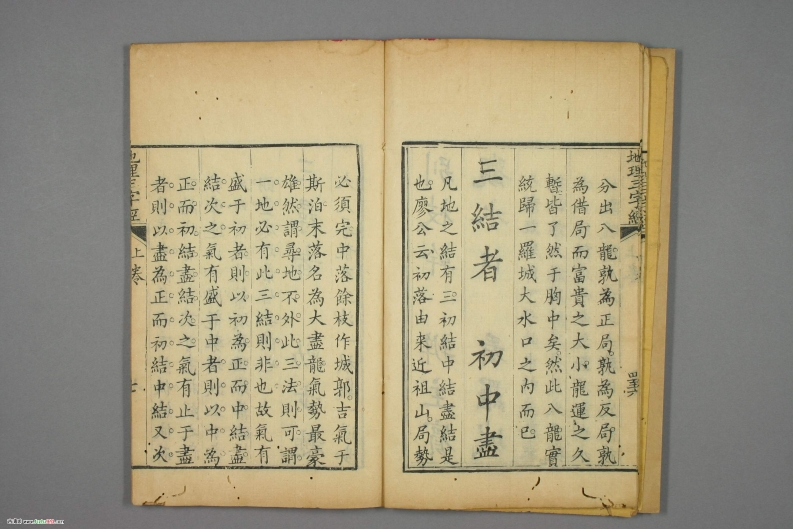 地理三字經
分出八龍孰為正局孰為反局孰
為借局而富貴之大小寵運之久
暫皆了然于胸中矣然此八龍實
統歸一羅城大水口之内而已
三結者　初中盡
凡地之結有三初結中結盡結是
也廖公云初落由來近祖山局勢
必須完中落餘枝作城郭吉氣于
斯泊末落名為大盡龍氣勢最豪
雄然謂尋地不外此三法則可謂
一地必有此三結則非也故氣有
盛于初者則以初為正而中結盡
結次之氣有盛于中者則以中為
正而初結盡結次之氣有止于盡
者則以盡為正而初結中結又次
地理三字經
上卷
七